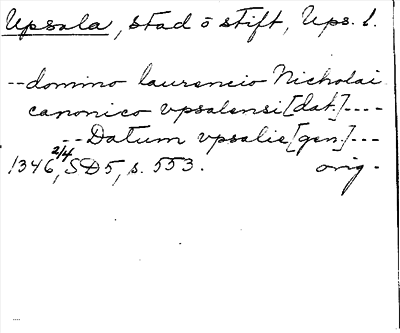 Upsala, stad o stift, Ups. l.
--domino laurencio Nicholai
canonico vpsalensi [dat.]----
--Datum vpsalie [gen.]---
1346 2/4, SD5, s. 553. orig.